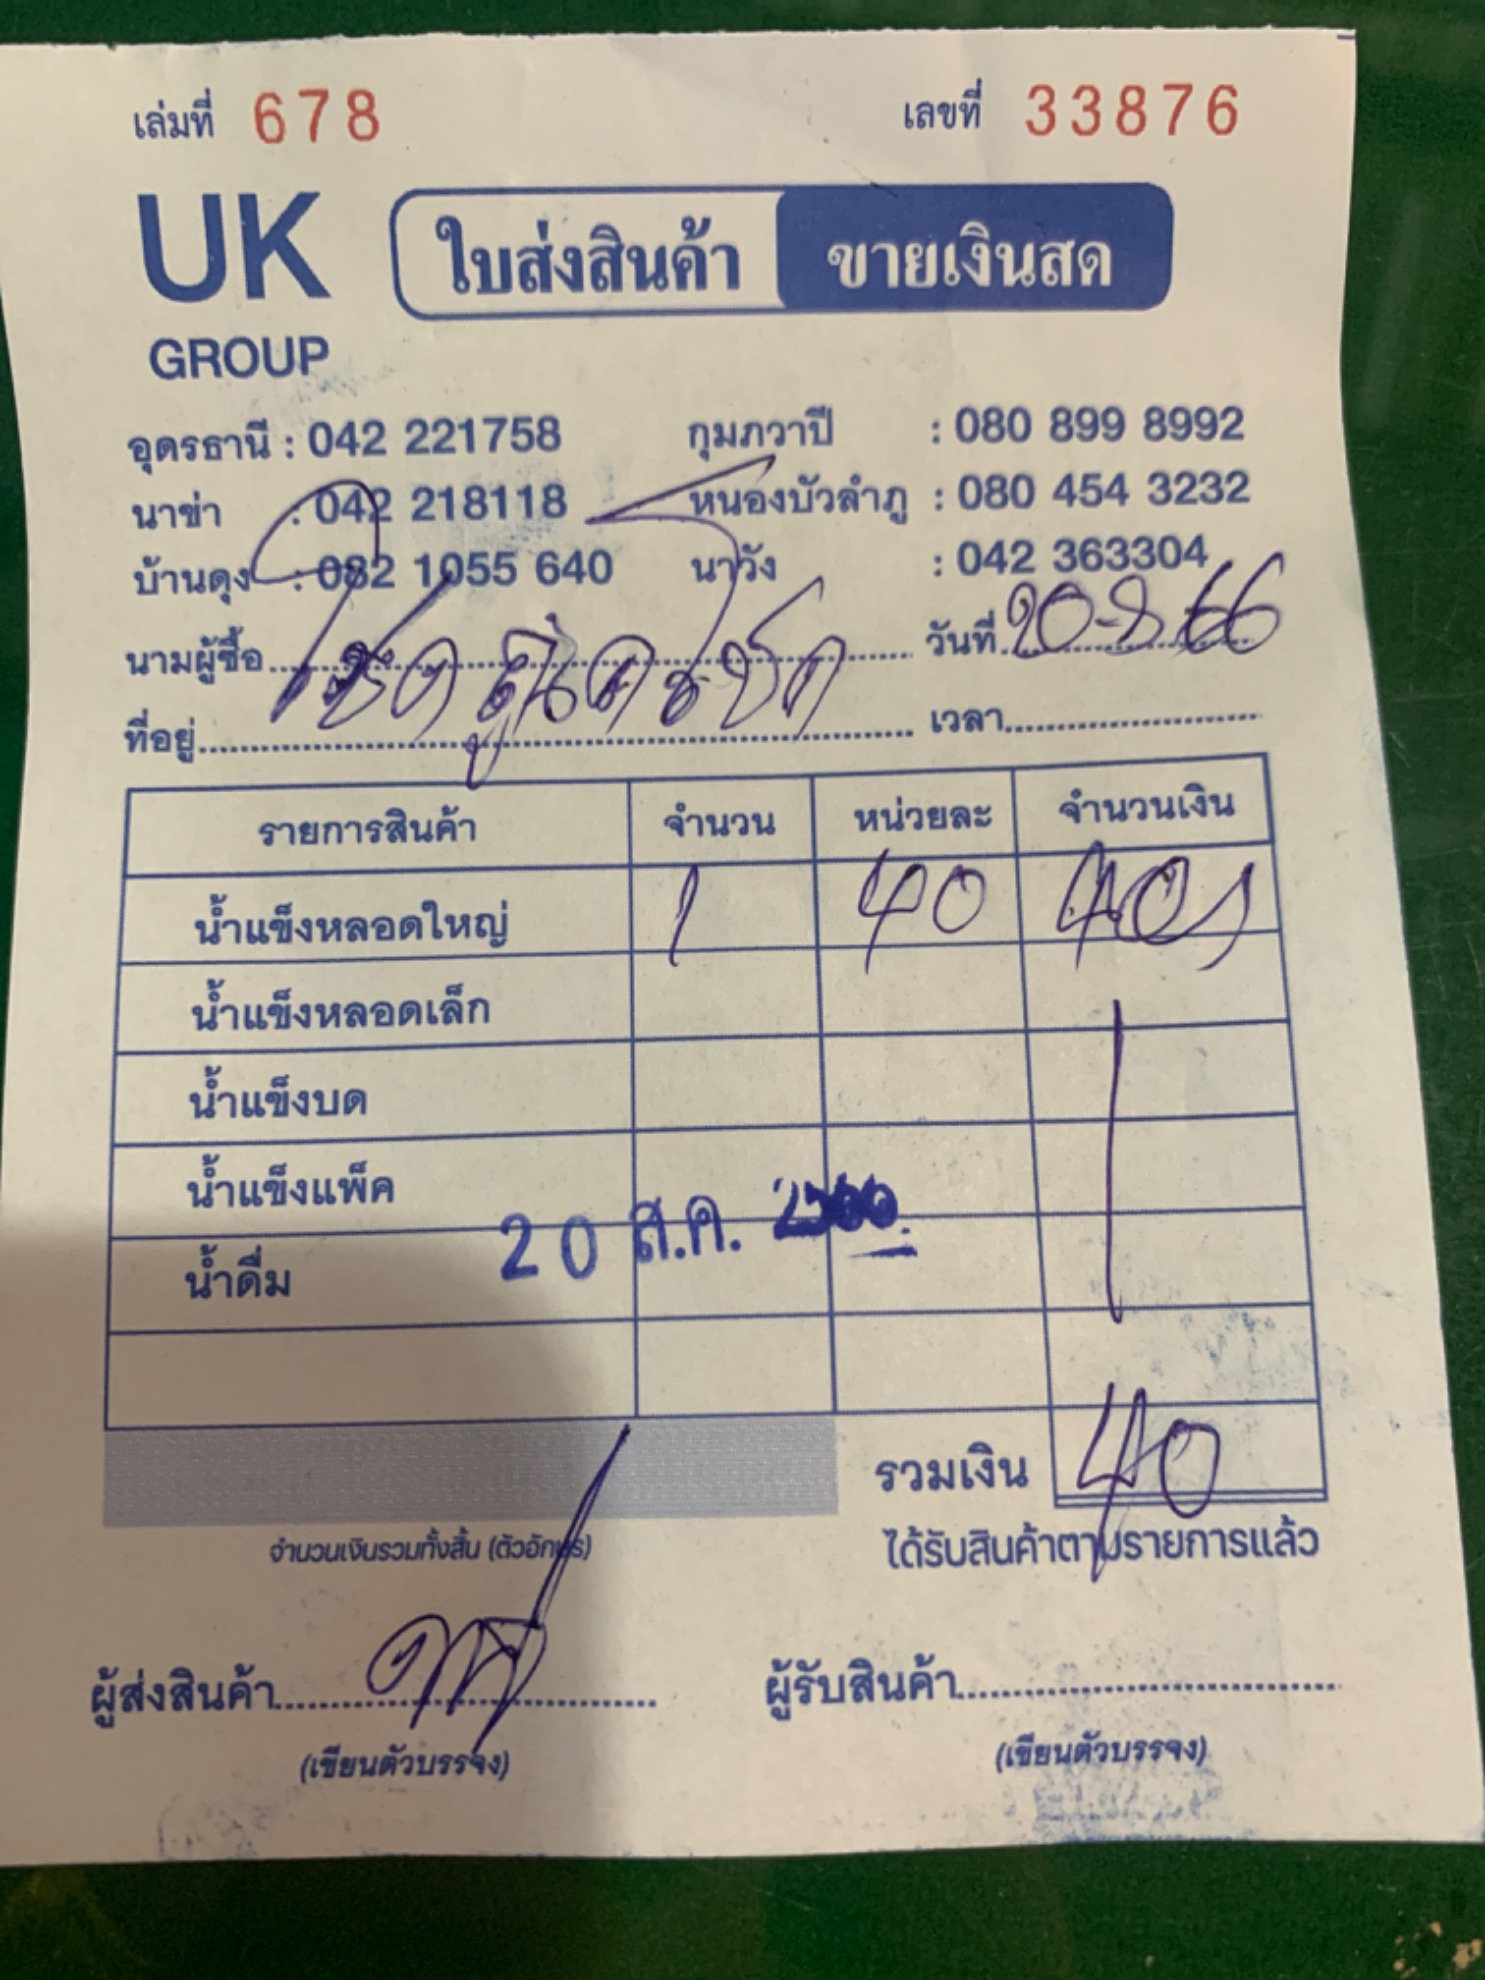 เล่มที่ 678 เลขที่ 33876
UK ใบส่งสินค้า ขายเงินสด
GROUP
อุดรธานี : 042 221758 กุมภวาปี : 080 899 8992
นาข่า : 042 218118 หนองบัวลำภู : 080 454 3232
บ้านดุง : 082 1055 640 นาวัง : 042 363304
นามผู้ซื้อ วันที่ 20-8-66
ที่อยู่ เวลา
รายการสินค้า จำนวน หน่วยละ จำนวนเงิน
น้ำแข็งหลอดใหญ่ 1 40 40
น้ำแข็งหลอดเล็ก
น้ำแข็งบด
น้ำแข็งแพ็ค
20 ส.ค. 2566
น้ำดื่ม
รวมเงิน 40
จำนวนเงินรวมทั้งสิ้น (ตัวอักษร) ได้รับสินค้าตามรายการแล้ว
ผู้ส่งสินค้า ผู้รับสินค้า
(เขียนตัวบรรจง) (เขียนตัวบรรจง)